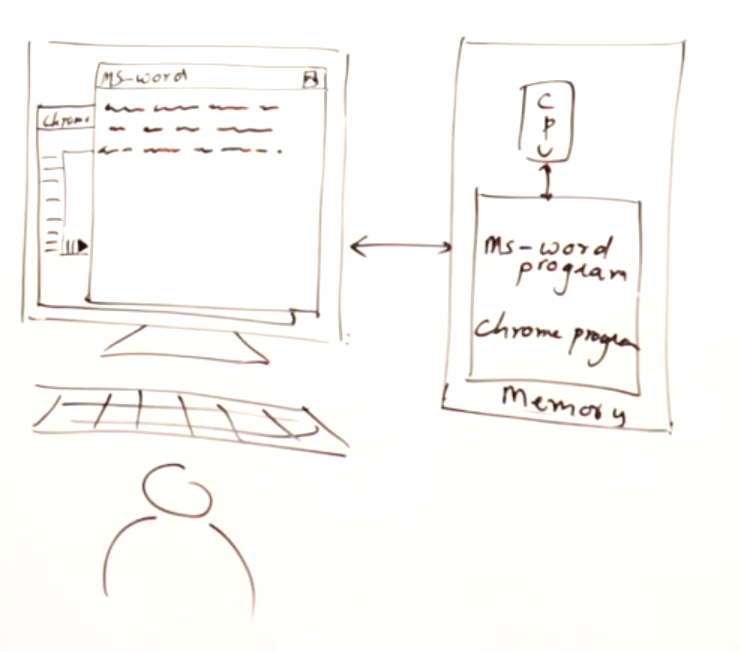 MS-word
Chrome
C
P
U
Ms-word
program
Chrome program
Memory